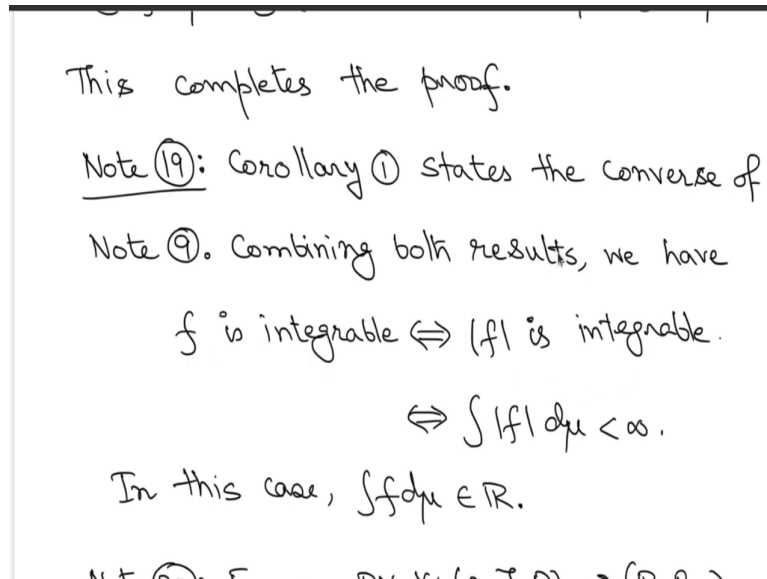 This completes the proof.
Note ⑲: Corollary ① states the converse of
Note ⑨. Combining both results, we have
f is integrable ⇔ |f| is integrable.
⇔ ∫|f| dμ < ∞.
In this case, ∫f dμ ∈ ℝ.